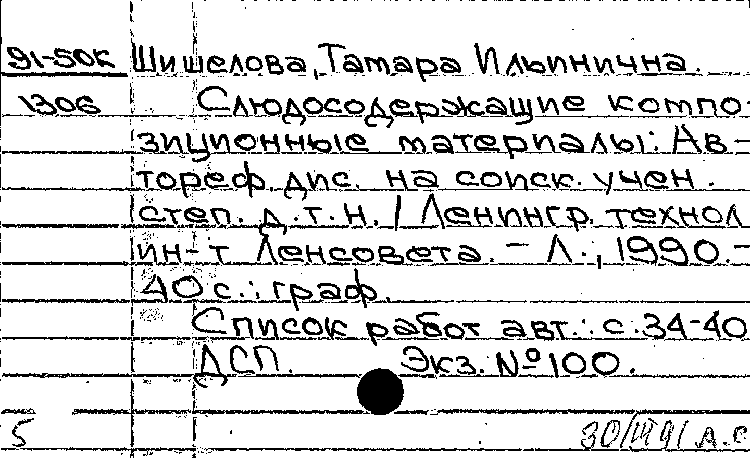 91-50к Шишелова, Тамара Ильинична.
1306 Слюдосодержащие компо-
зиционные материалы: Ав-
тореф. дис. на соиск. учен.
степ. д.т.н. / Ленингр. технол
ин-т Ленсовета. – Л., 1990.-
40 с.: граф.
Список работ авт.: с.34-40
ДСП. Экз. №100.
5 30/VII 91 А.С